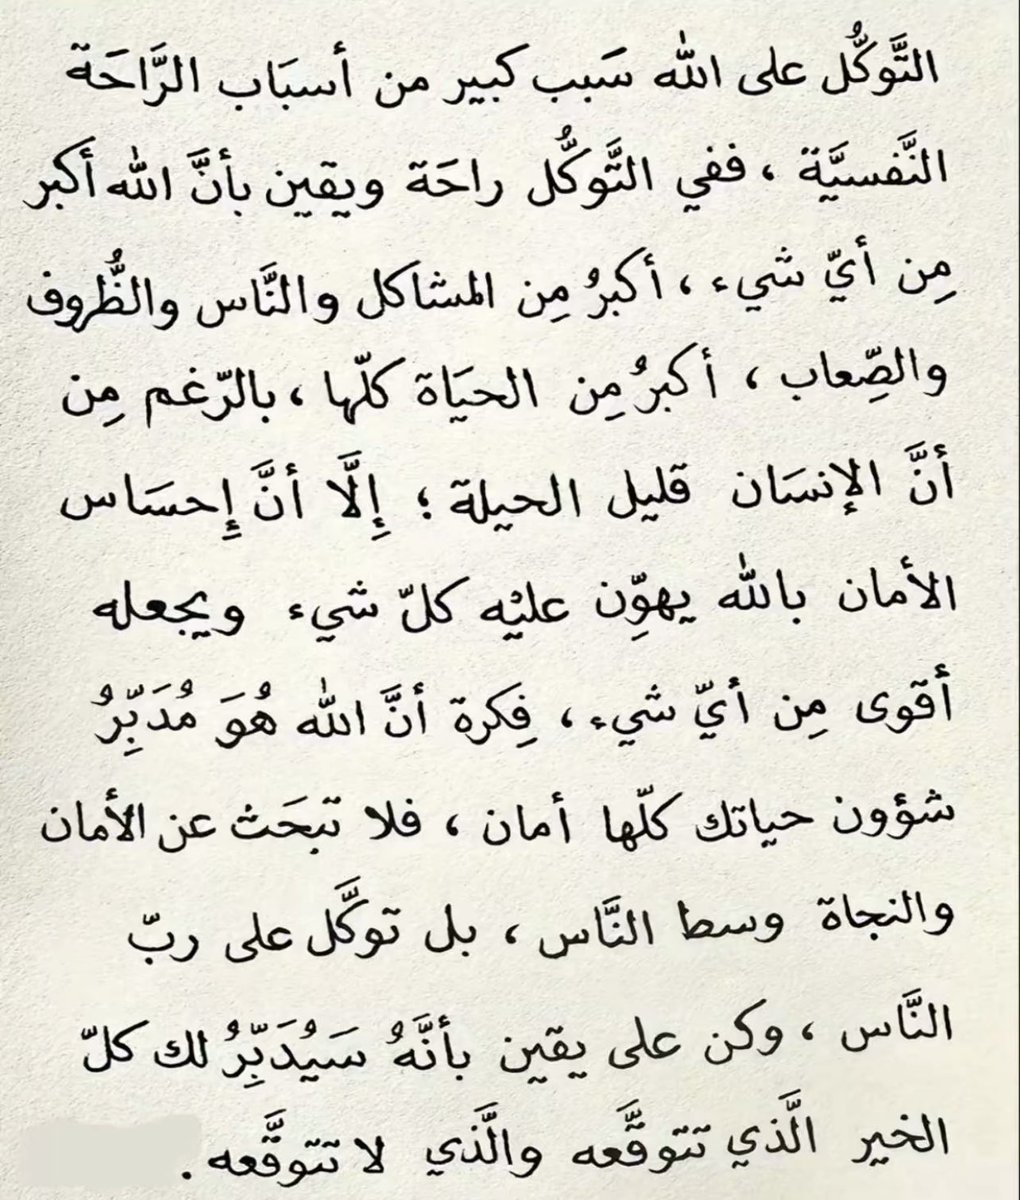 التَّوكُّل على الله سَبب كبير من أسبَاب الرَّاحَة
النَّفسيَّة ، ففي التَّوكُّل راحَة ويقين بأنَّ الله أكبر
مِن أيّ شيء ، أكبرُ مِن المشاكل والنَّاس والظُّروف
والصِّعاب ، أكبرُ مِن الحيَاة كلّها ، بالرّغم مِن
أنَّ الإنسَان قليل الحيلة ؛ إِلَّا أنَّ إِحسَاس
الأمان بالله يهوِّن عليْه كلّ شيء ويجعله
أقوى مِن أيّ شيء ، فِكرة أنَّ الله هُوَ مُدَبِّرُ
شؤون حياتك كلّها أمان ، فلا تبحَث عن الأمان
والنجاة وسط النَّاس ، بل توكَّل على ربّ
النَّاس ، وكن على يقين بأنَّهُ سَيُدَبِّرُ لك كلّ
الخير الَّذي تتوقَّعه والَّذي لا تتوقَّعه .